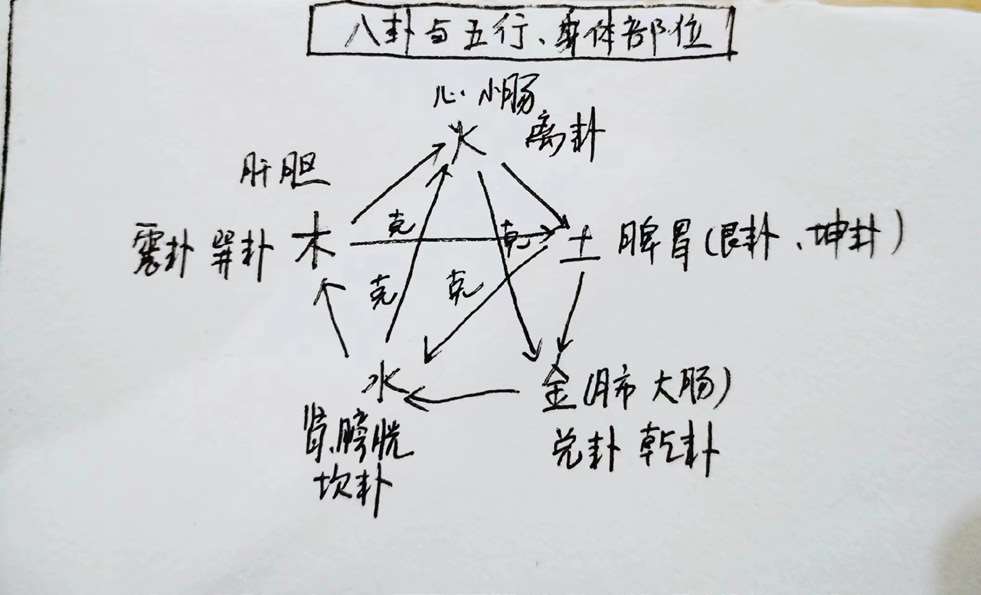 八卦与五行、身体部位
心 小肠
火 离卦
肝胆
震卦 巽卦 木 克 克 土 脾胃(艮卦、坤卦)
克 克
水 金(肺 大肠)
肾.膀胱 兑卦 乾卦
坎卦